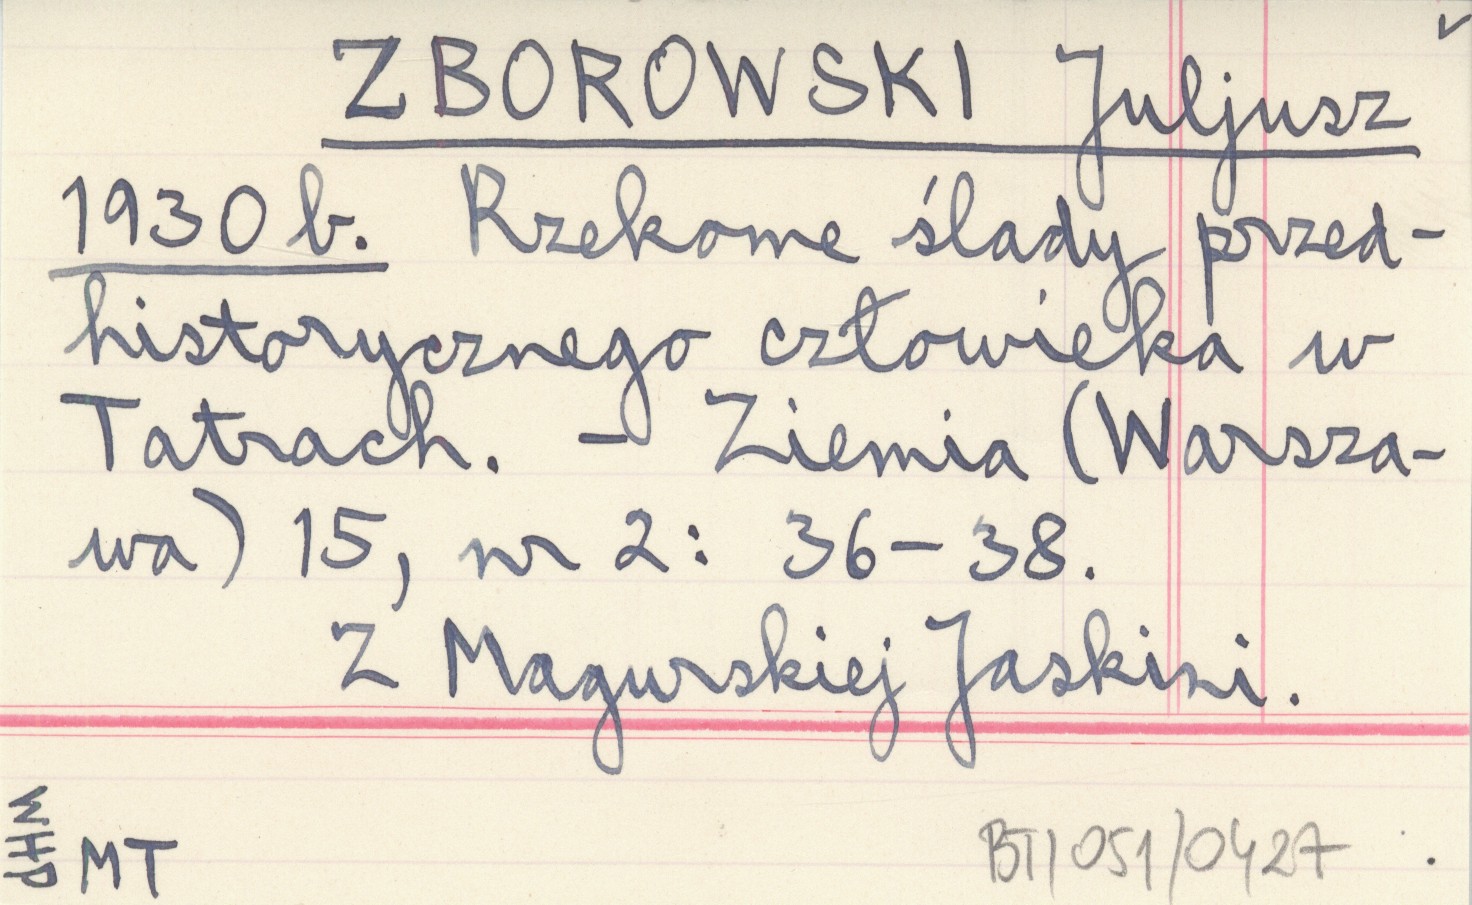 ZBOROWSKI Juljusz
1930 b. Rzekome ślady przed-
historycznego człowieka w
Tatrach. - Ziemia (Warsza-
wa) 15, nr 2: 36-38.
Z Magurskiej Jaskini.
WHP
MT
BT/051/0427